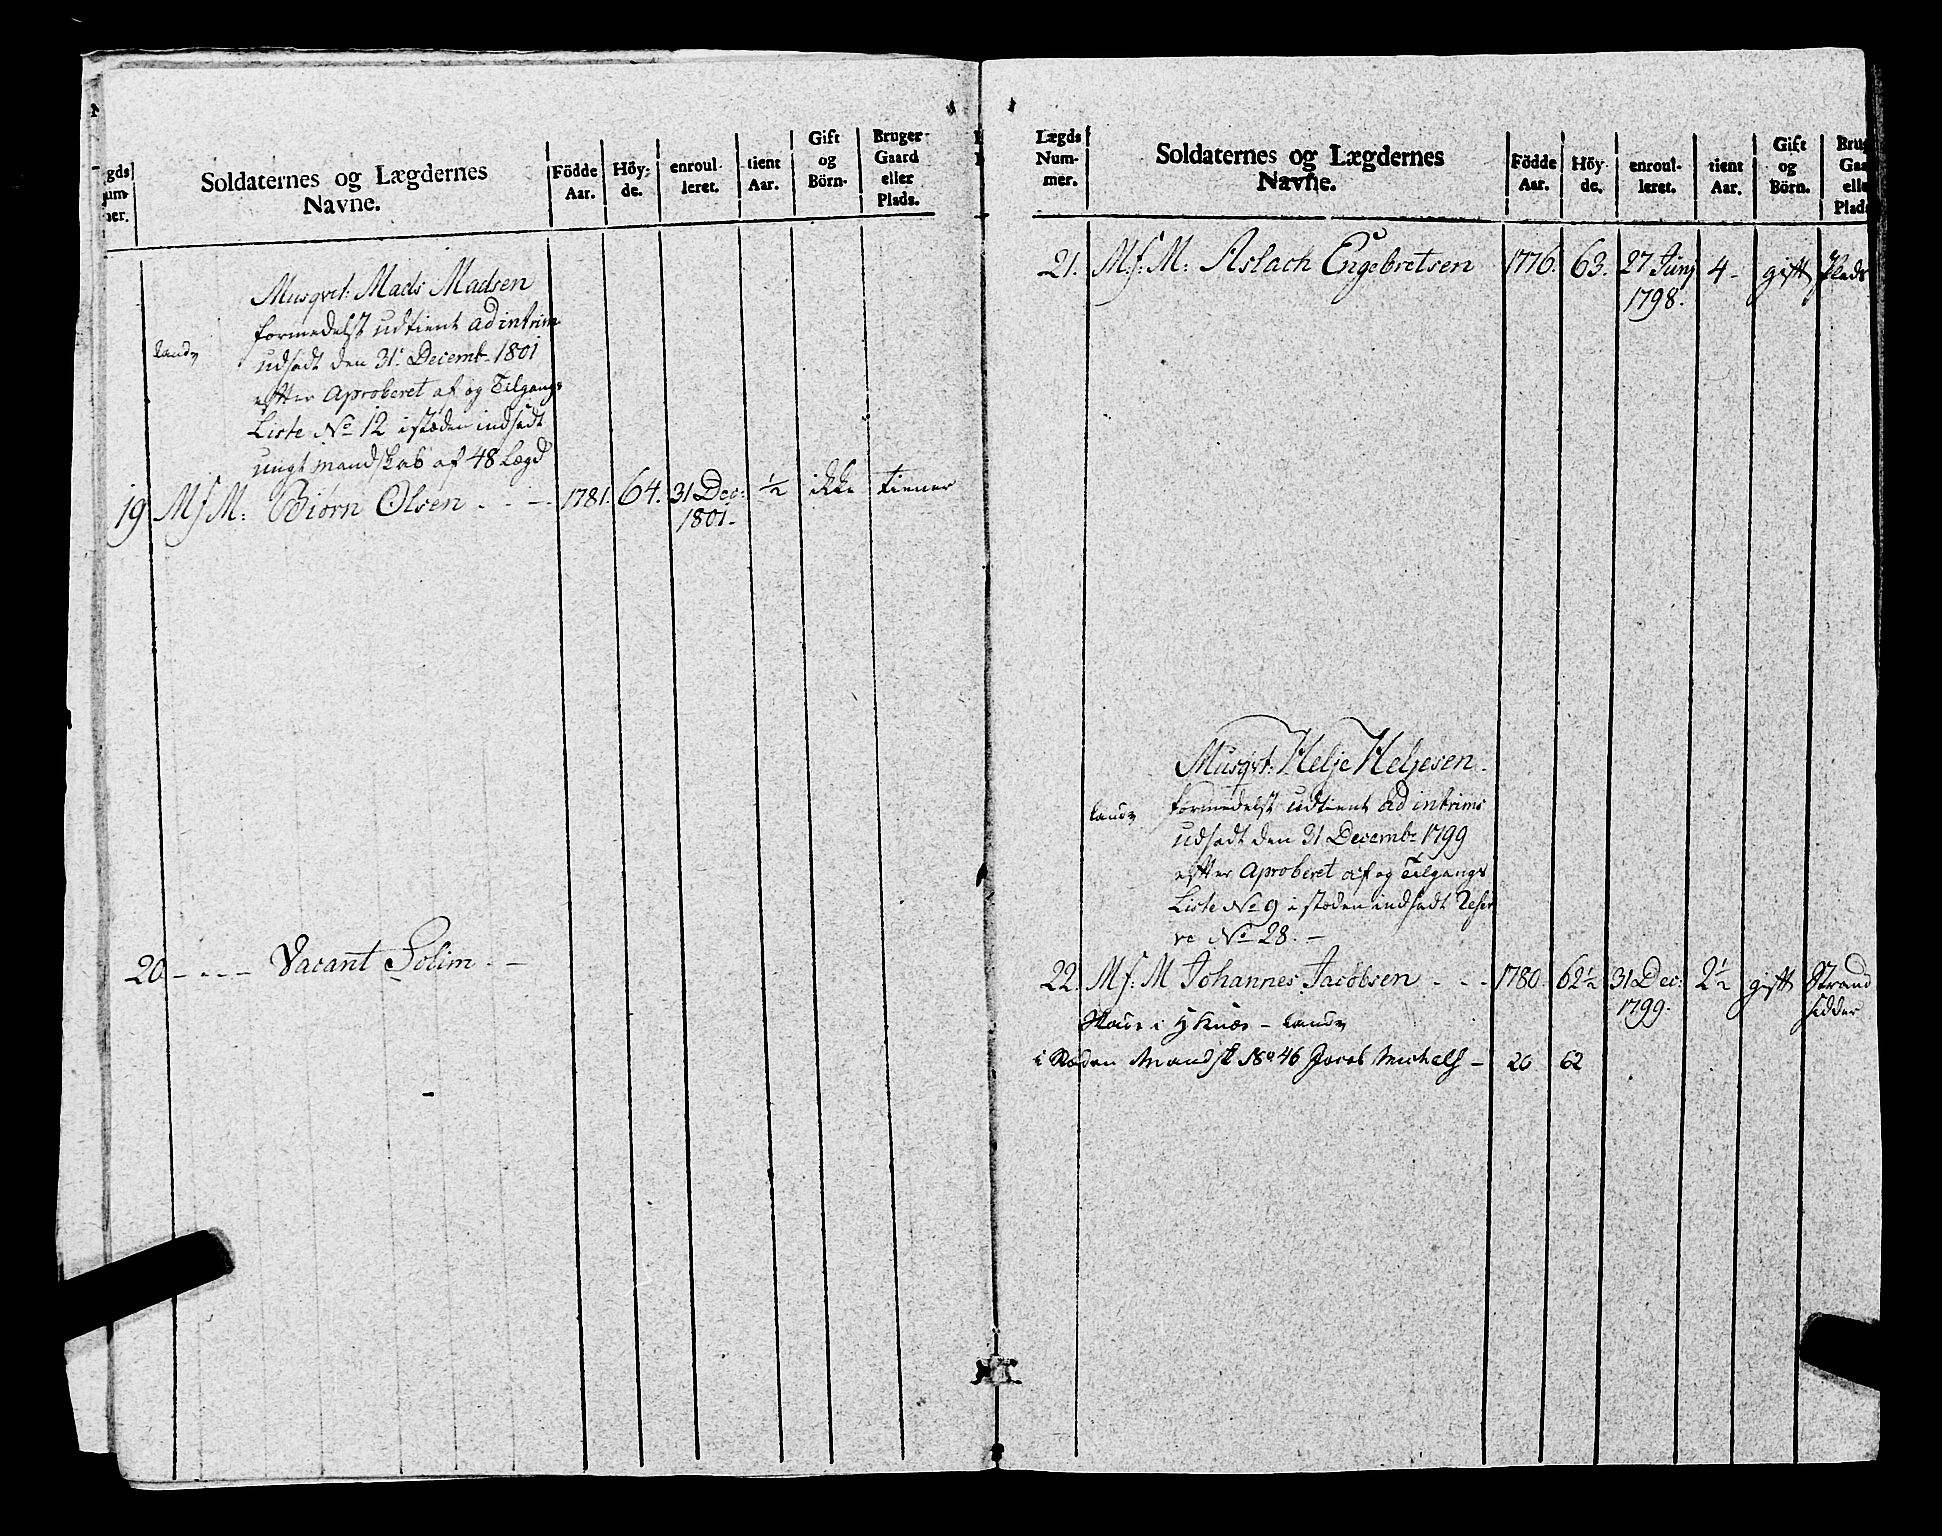 gds
um-
ner.
Soldaternes og Lægdernes
Navne.
Födde
Aar.
Höy-
de.
enroul-
leret.
tient
Aar.
Gift
og
Börn.
Bruger
Gaard
eller
Plads.
Musqvet: Mads Madsen
formedelst udtient ad intrim
landv
udsadt den 31 Decemb. 1801
efter Aproberet af og Tilgangs
Liste No 12 i stæden indsadt
ungt mandskab af 48 Lægd
19 M f M: Biörn Olsen - - - 1781. 64. 31 Dec: ½ ikke tiener
1801.
20 - - - - Vacant Solim - -
Lægds
Num-
mer.
Soldaternes og Lægdernes
Navne.
Födde
Aar.
Höy-
de.
enroul-
leret.
tient
Aar.
Gift
og
Börn.
Brug
Gaa
elle
Plads
21. M: f: M: Aslach Engebretsen 1776. 63. 27 Junj 4 - gift Plads
1798.
Musqvt: Helje Heljesen.
landv formedelst udtient ad intrims
udsadt den 31 Decembr 1799
efter Aproberet af og Tilgangs
Liste No 9 i stæden indsadt Reser
ve No 28. -
22. M f: M Johannes Jacobsen - - - 1780. 62½ 31 Dec: 2½ gift Strand
1799. sidder
Skade i Knæe - landv
i Stæden Mandsk 46 Jacob Michels - 20 62